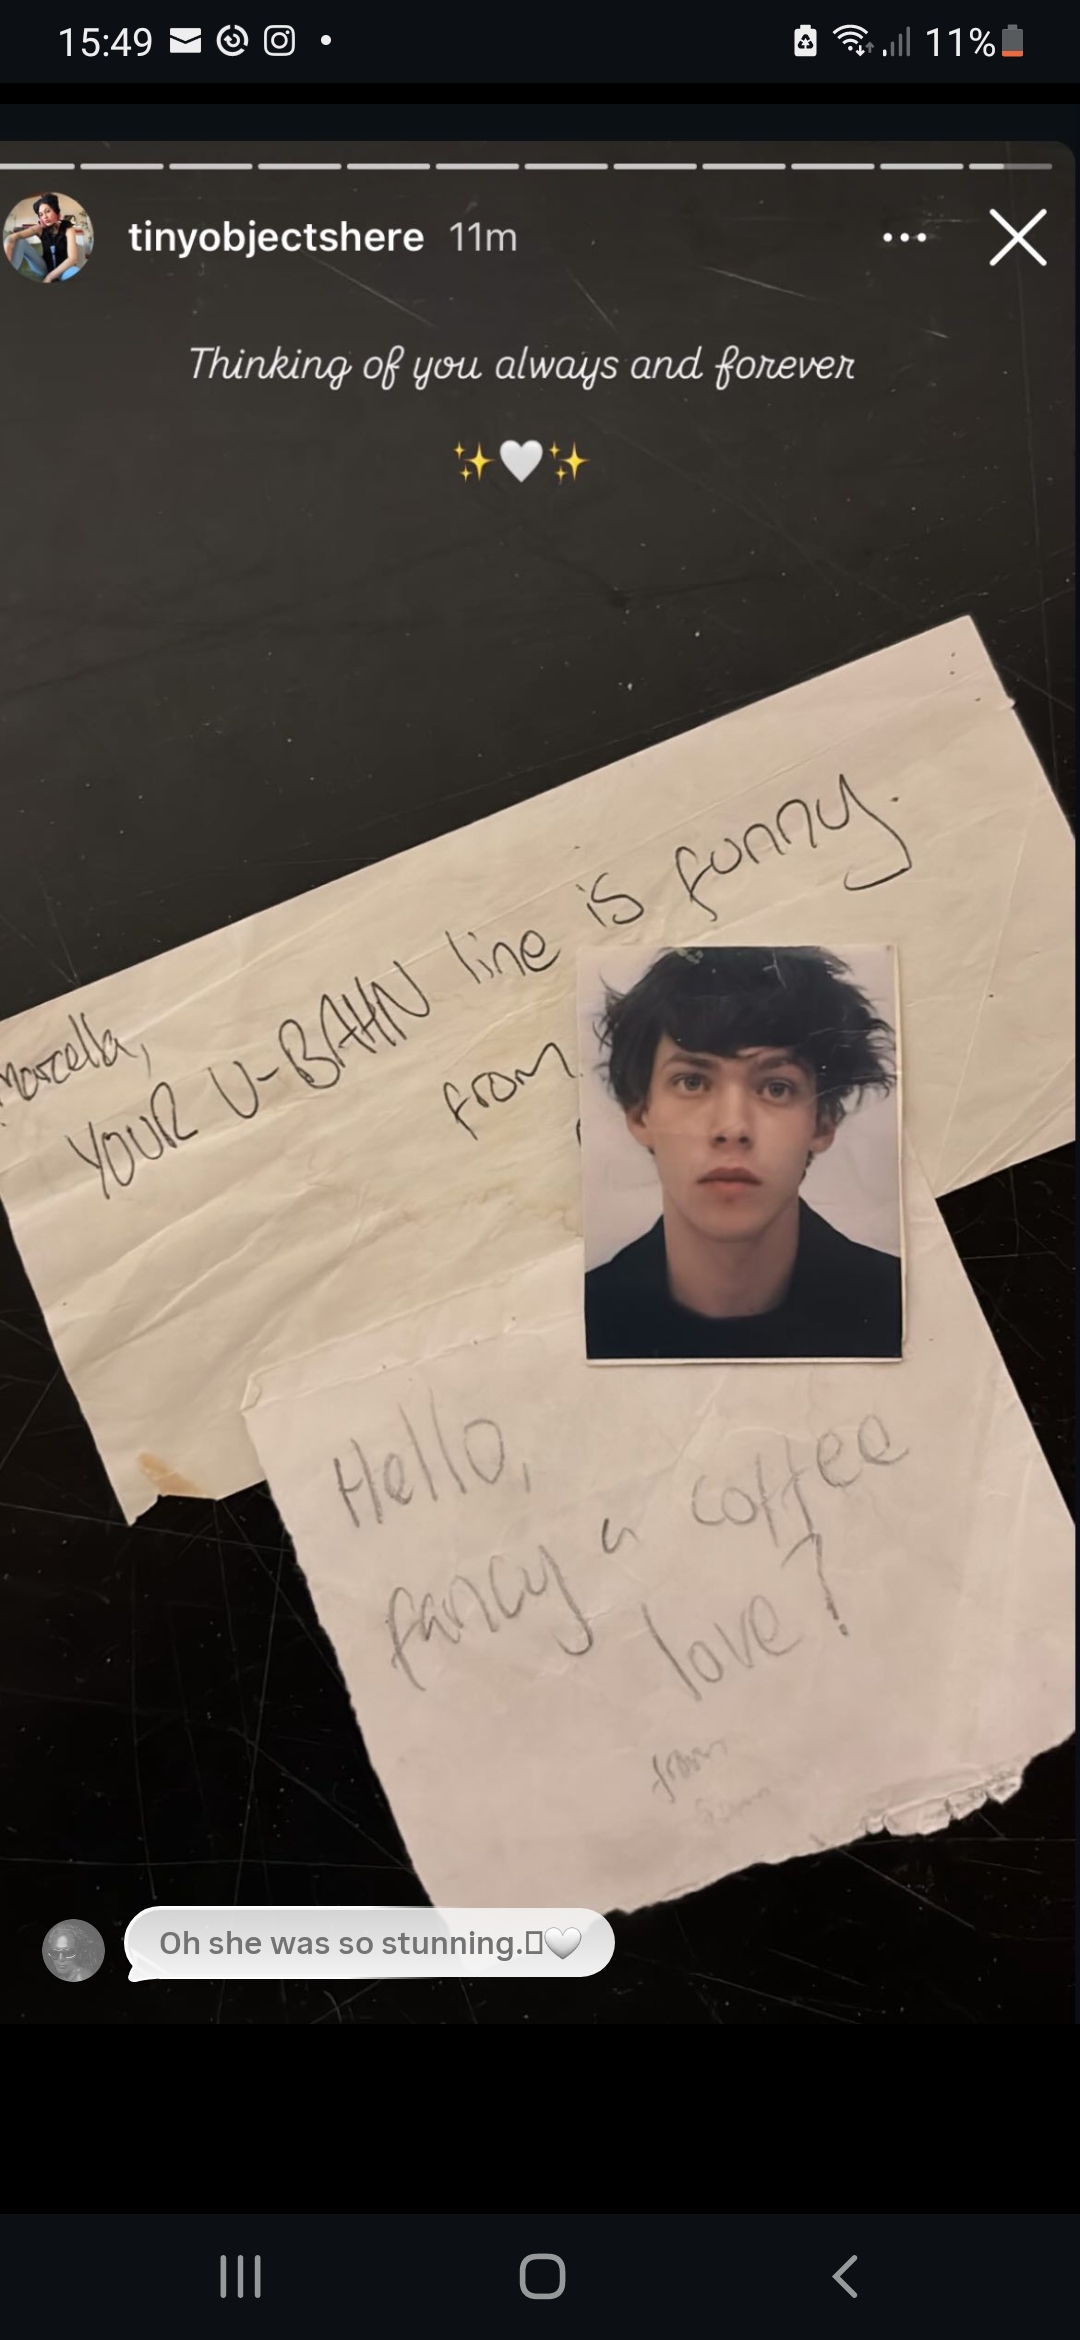 15:49
11%
tinyobjectshere 11m
Thinking of you always and forever
✨🤍✨
Marcella,
YOUR U-BAHN line is funny.
from
Hello,
fancy a coffee
love?
from
Oh she was so stunning.▯🤍